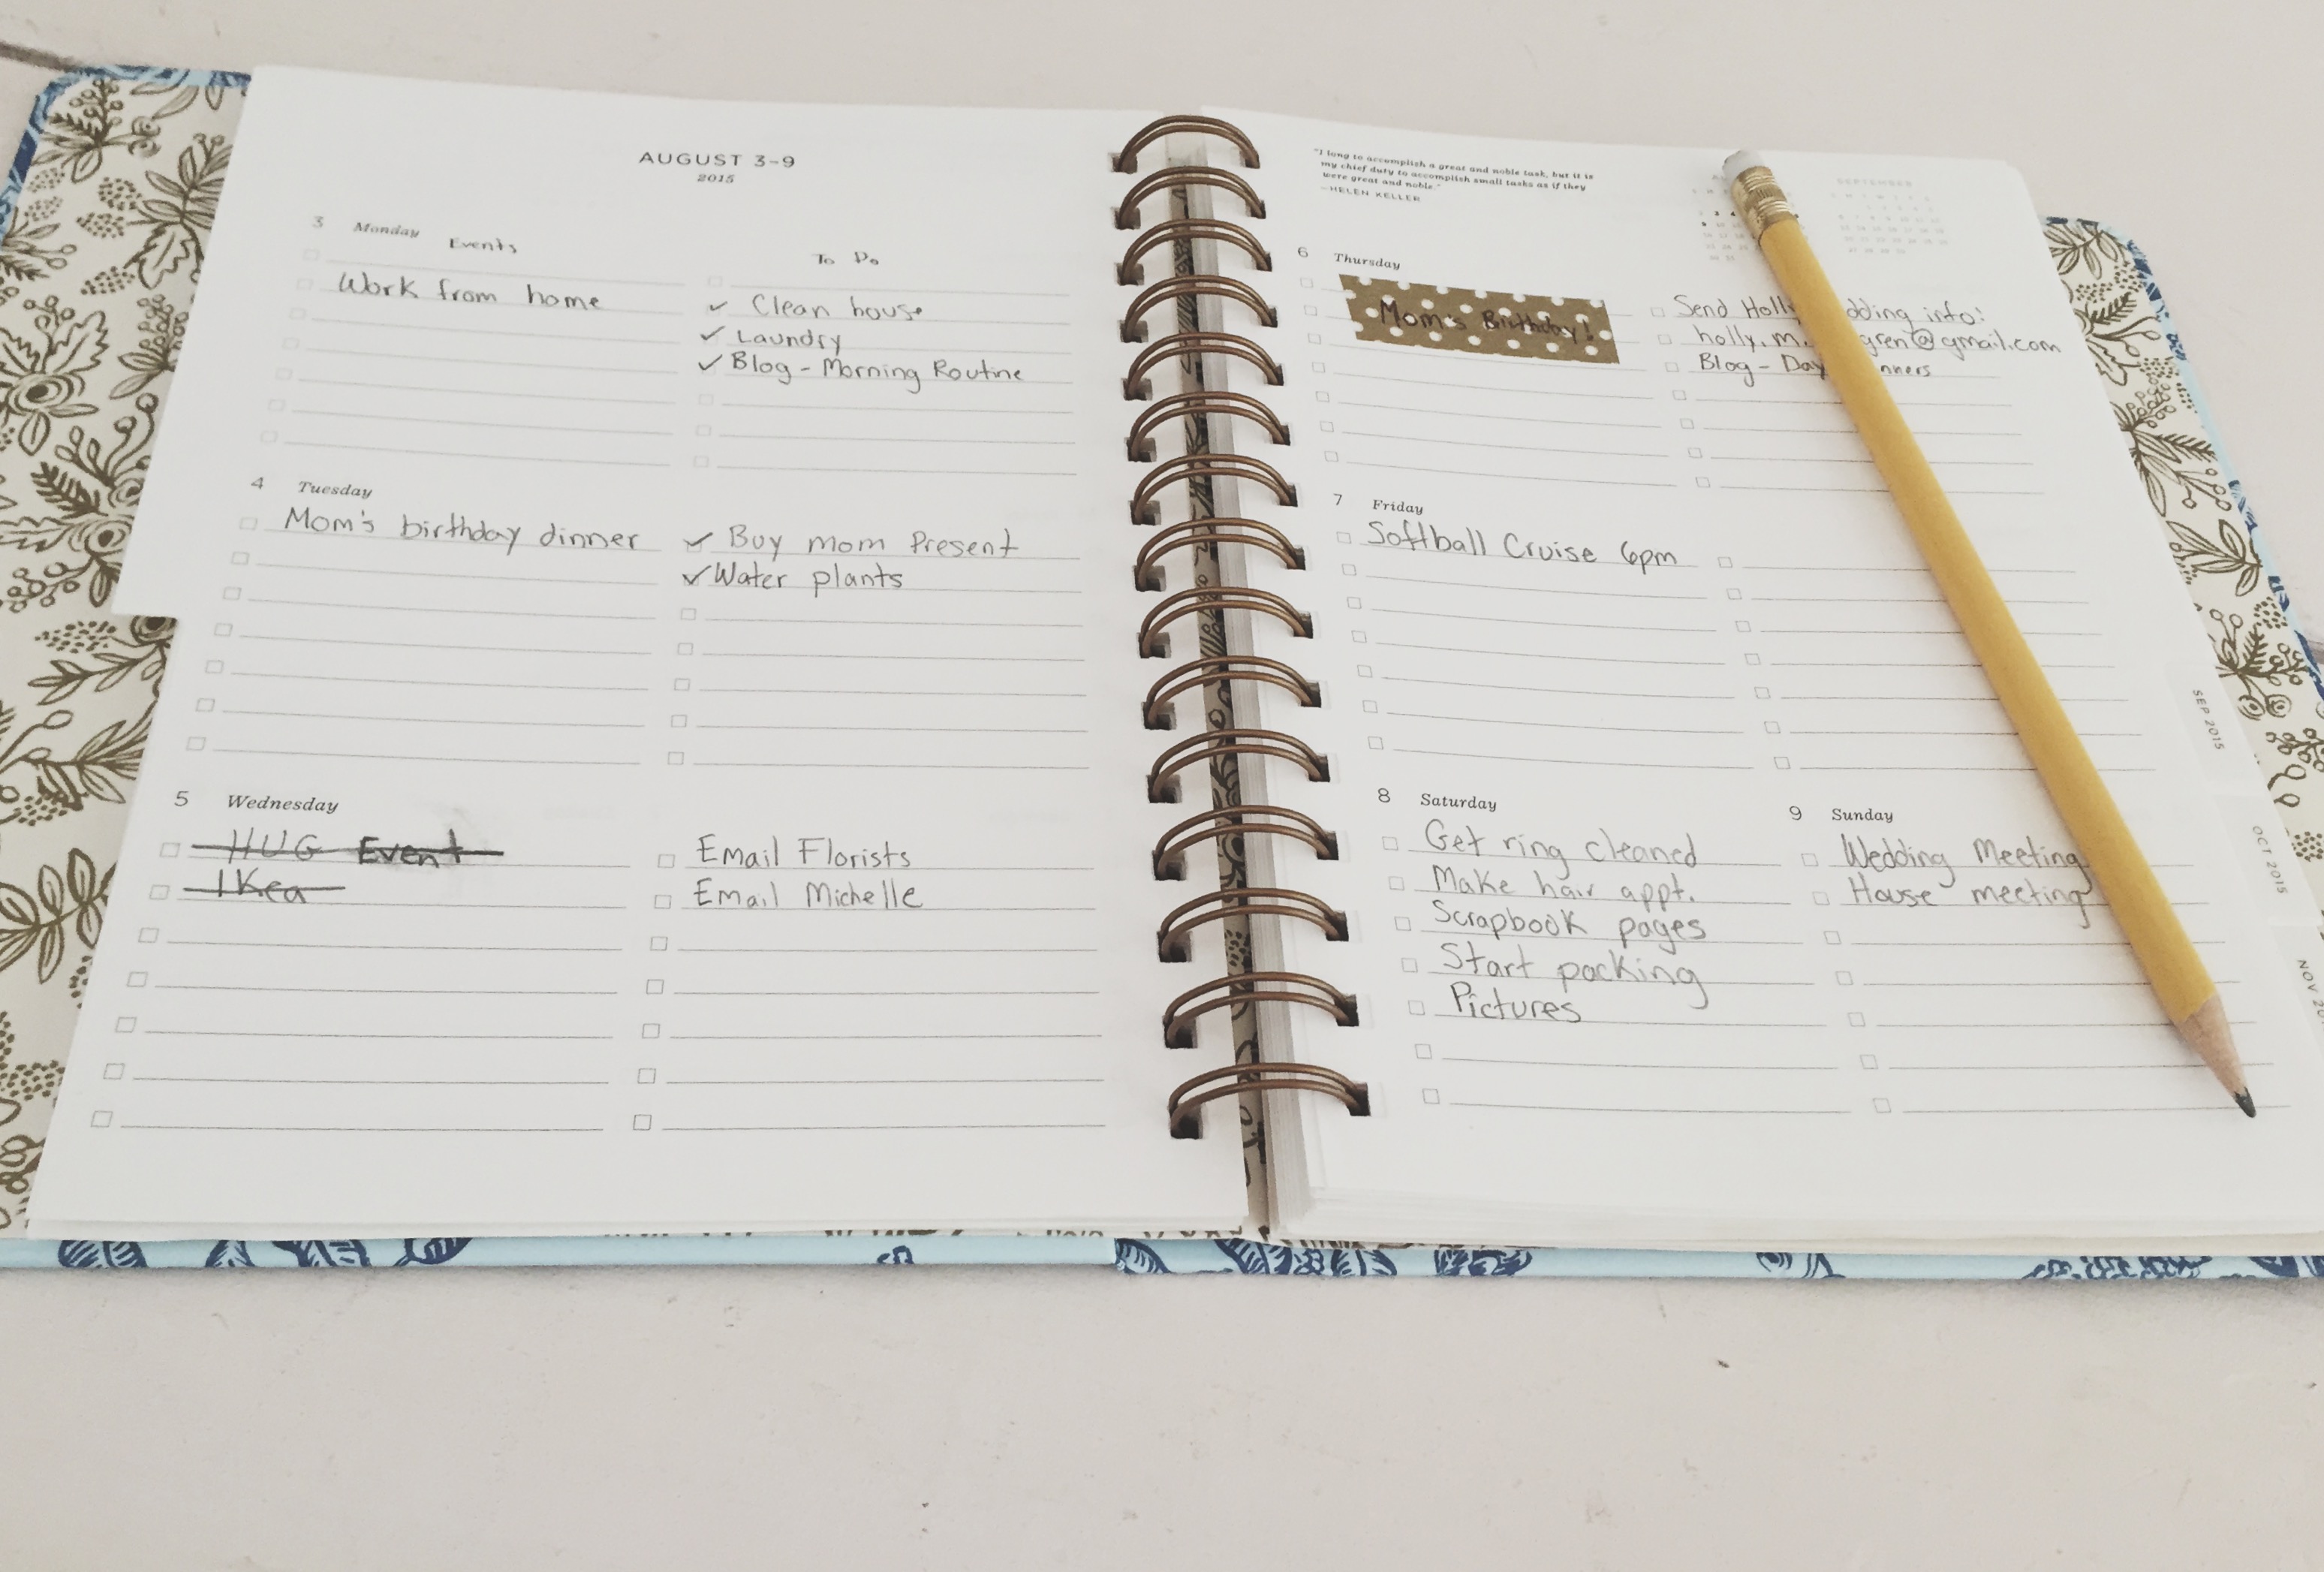 AUGUST 3-9
2015
3 Monday Events
To Do
Work from home
✓ Clean house
✓ Laundry
✓ Blog - Morning Routine
4 Tuesday
Mom's birthday dinner
✓ Buy mom Present
✓ Water plants
5 Wednesday
HUG Event
IKea
Email Florists
Email Michelle
"I long to accomplish a great and noble task, but it is
my chief duty to accomplish small tasks as if they
were great and noble."
—HELEN KELLER
SEPTEMBER
6 Thursday
Mom's Birthday!
Send Holly dding info:
holly.m. gren@gmail.com
Blog - Day nners
7 Friday
Softball Cruise 6pm
8 Saturday
Get ring cleaned
Make hair appt.
Scrapbook pages
Start packing
Pictures
9 Sunday
Wedding Meeting
House meeting
SEP 2015
OCT 2015
NOV 20